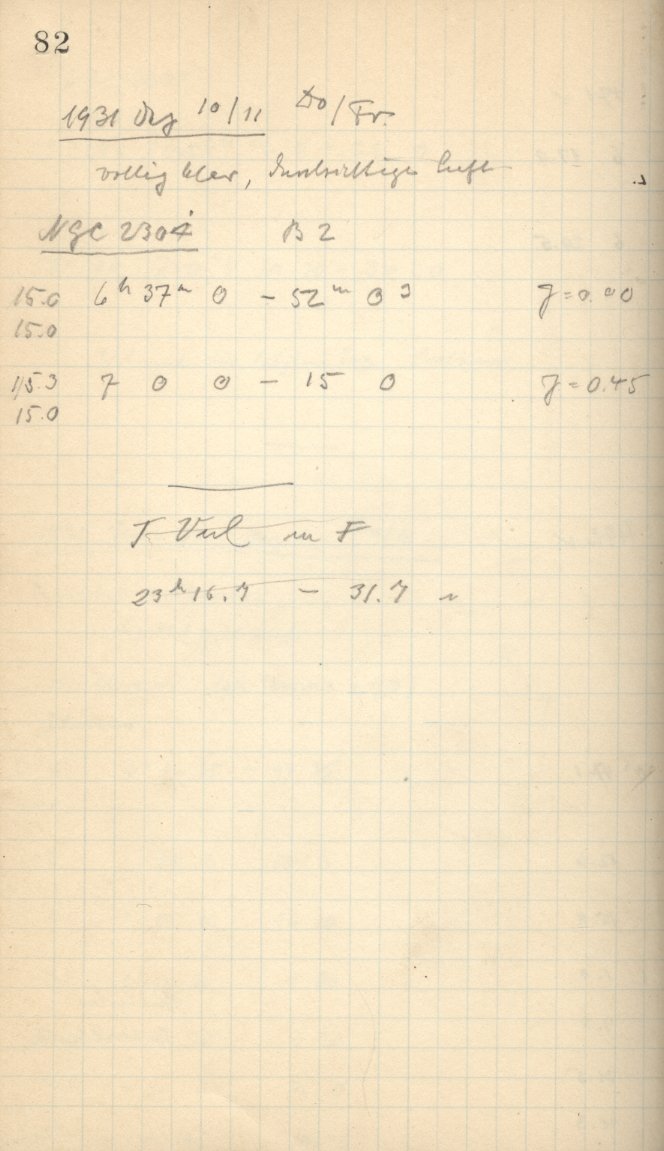 82
1931 Dez 10/11 Do/Fr.
völlig klar, durchsichtige Luft
NGC 2304 B 2
15.0 6h 37m 0 - 52m 0s J=0.00
15.0
15.3 7 0 0 - 15 0 J=0.45
15.0
in F
23h 16.7 - 31.7